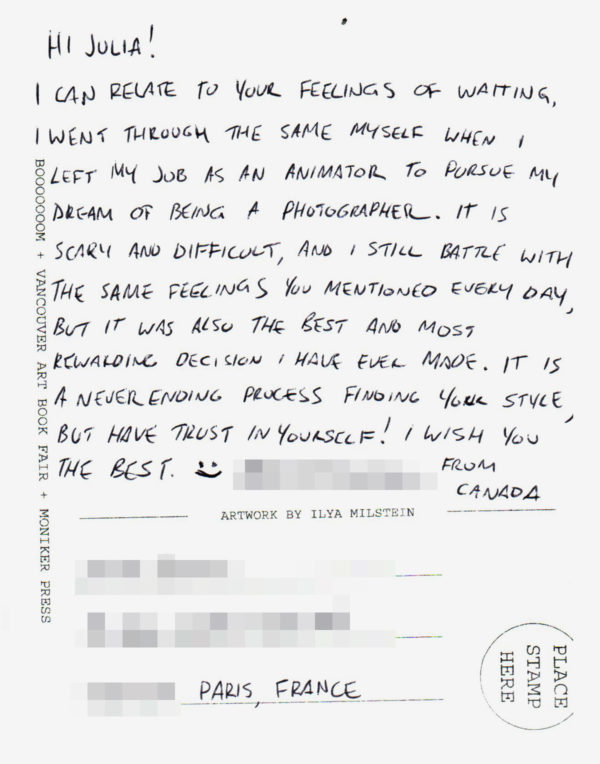 HI JULIA!
I CAN RELATE TO YOUR FEELINGS OF WAITING,
I WENT THROUGH THE SAME MYSELF WHEN I
LEFT MY JOB AS AN ANIMATOR TO PURSUE MY
DREAM OF BEING A PHOTOGRAPHER. IT IS
SCARY AND DIFFICULT, AND I STILL BATTLE WITH
THE SAME FEELINGS YOU MENTIONED EVERY DAY,
BUT IT WAS ALSO THE BEST AND MOST
REWARDING DECISION I HAVE EVER MADE. IT IS
A NEVER ENDING PROCESS FINDING YOUR STYLE,
BUT HAVE TRUST IN YOURSELF! I WISH YOU
THE BEST. :) FROM
CANADA
ARTWORK BY ILYA MILSTEIN
PARIS, FRANCE
BOOOOOOOM + VANCOUVER ART BOOK FAIR + MONIKER PRESS
PLACE
STAMP
HERE